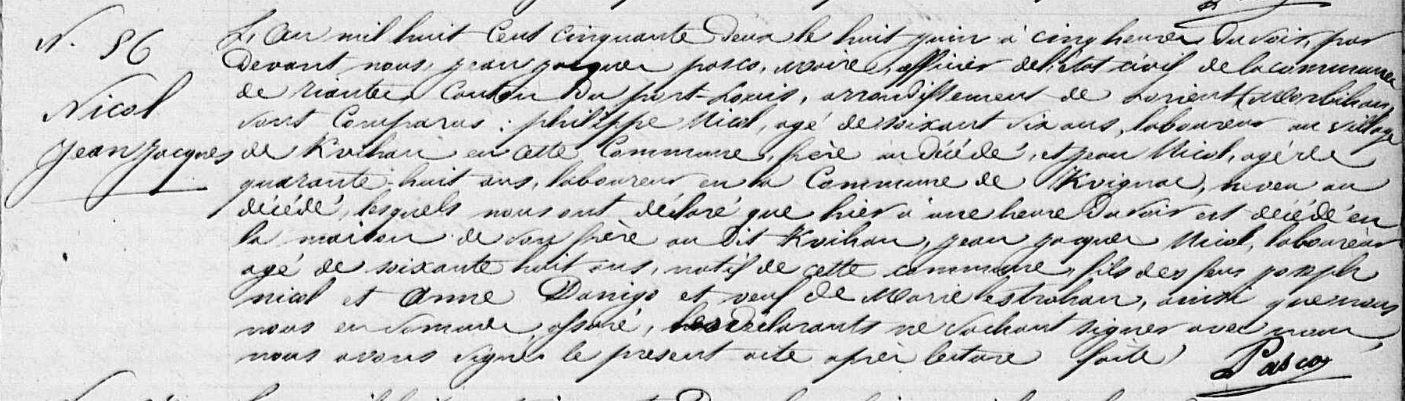 N. 56
Nicol
Jean Jacques
L'an mil huit cent cinquante deux le huit juin à cinq heures du soir, par
devant nous, jean jacques pasco, maire, officier de l'état civil de la commune
de riantec canton du port-Louis, arrondissement de Lorient (Morbihan,
sont comparus : philippe Nicol, agé de soixant six ans, laboureur au village
de Kvihan en cette commune, frère au décédé, et jean Nicol, agé de
quarante-huit ans, laboureur en la commune de Kvignac, neveu au
décédé, lesquels nous ont déclaré que hier à une heure du soir est décédé en
la maison de son frère au dit Kvihan, jean jacques Nicol, laboureur
agé de soixante huit ans, natif de cette commune, fils des feus joseph
nicol et anne Danigo et veuf de Marie , ainsi que nous
nous en sommes assuré, les déclarants ne sachant signer avec nous,
nous avons signé le present acte après lecture faite
Pasco